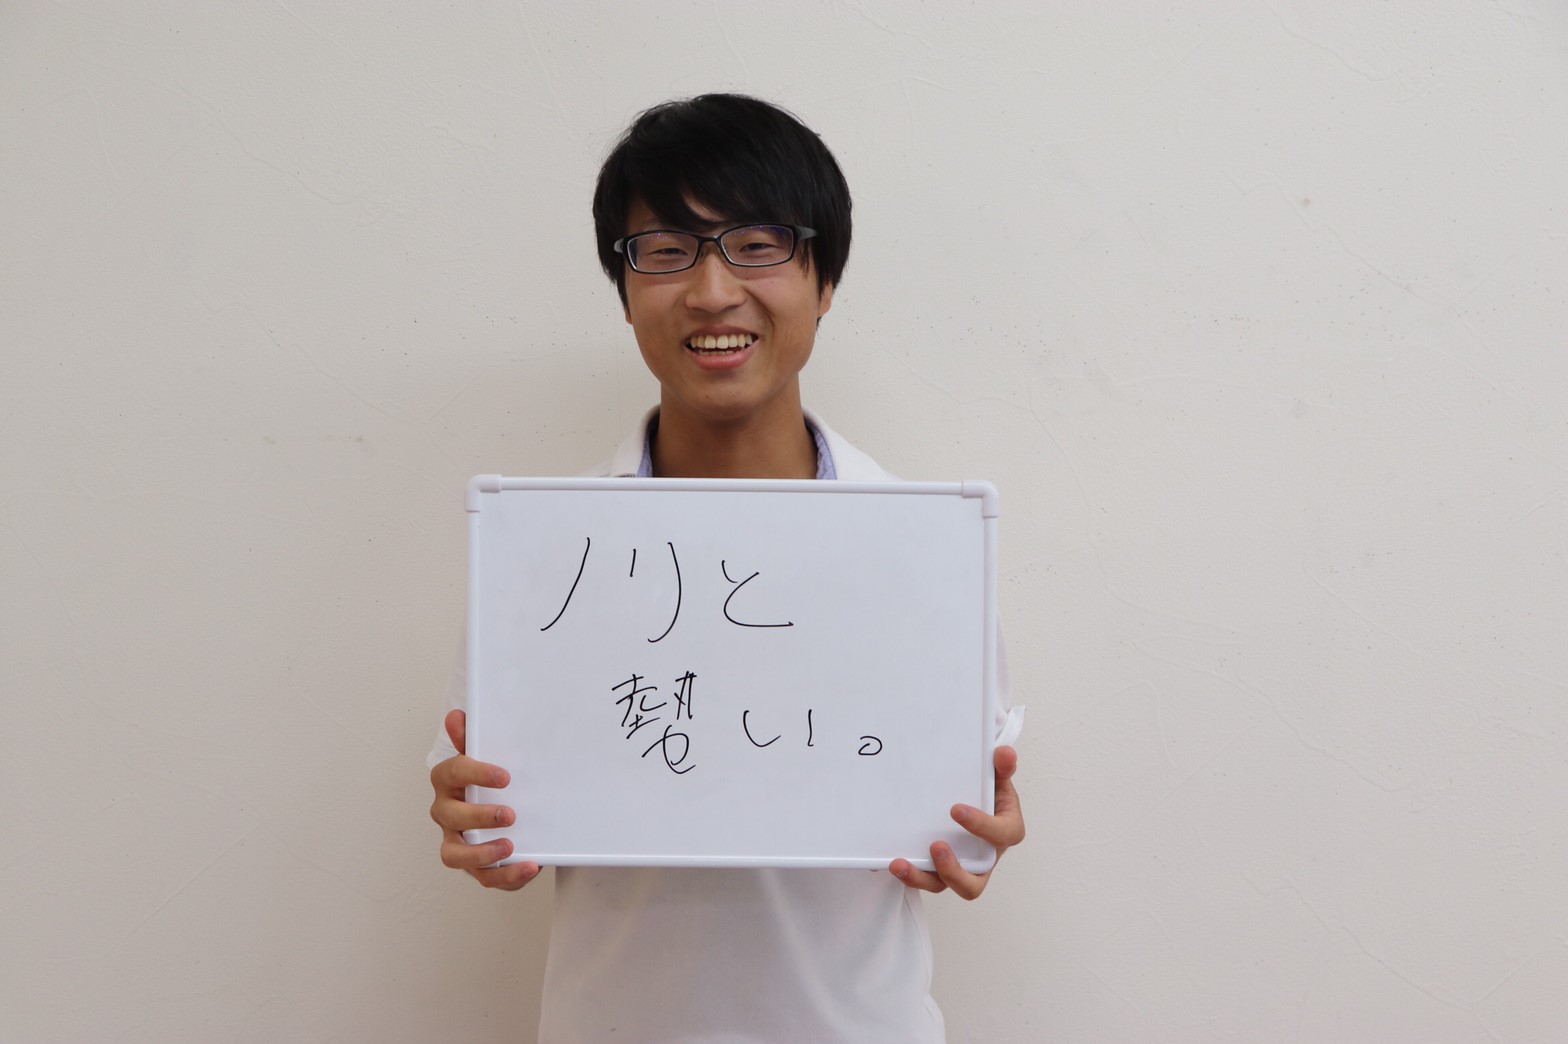 ノリと
勢い。